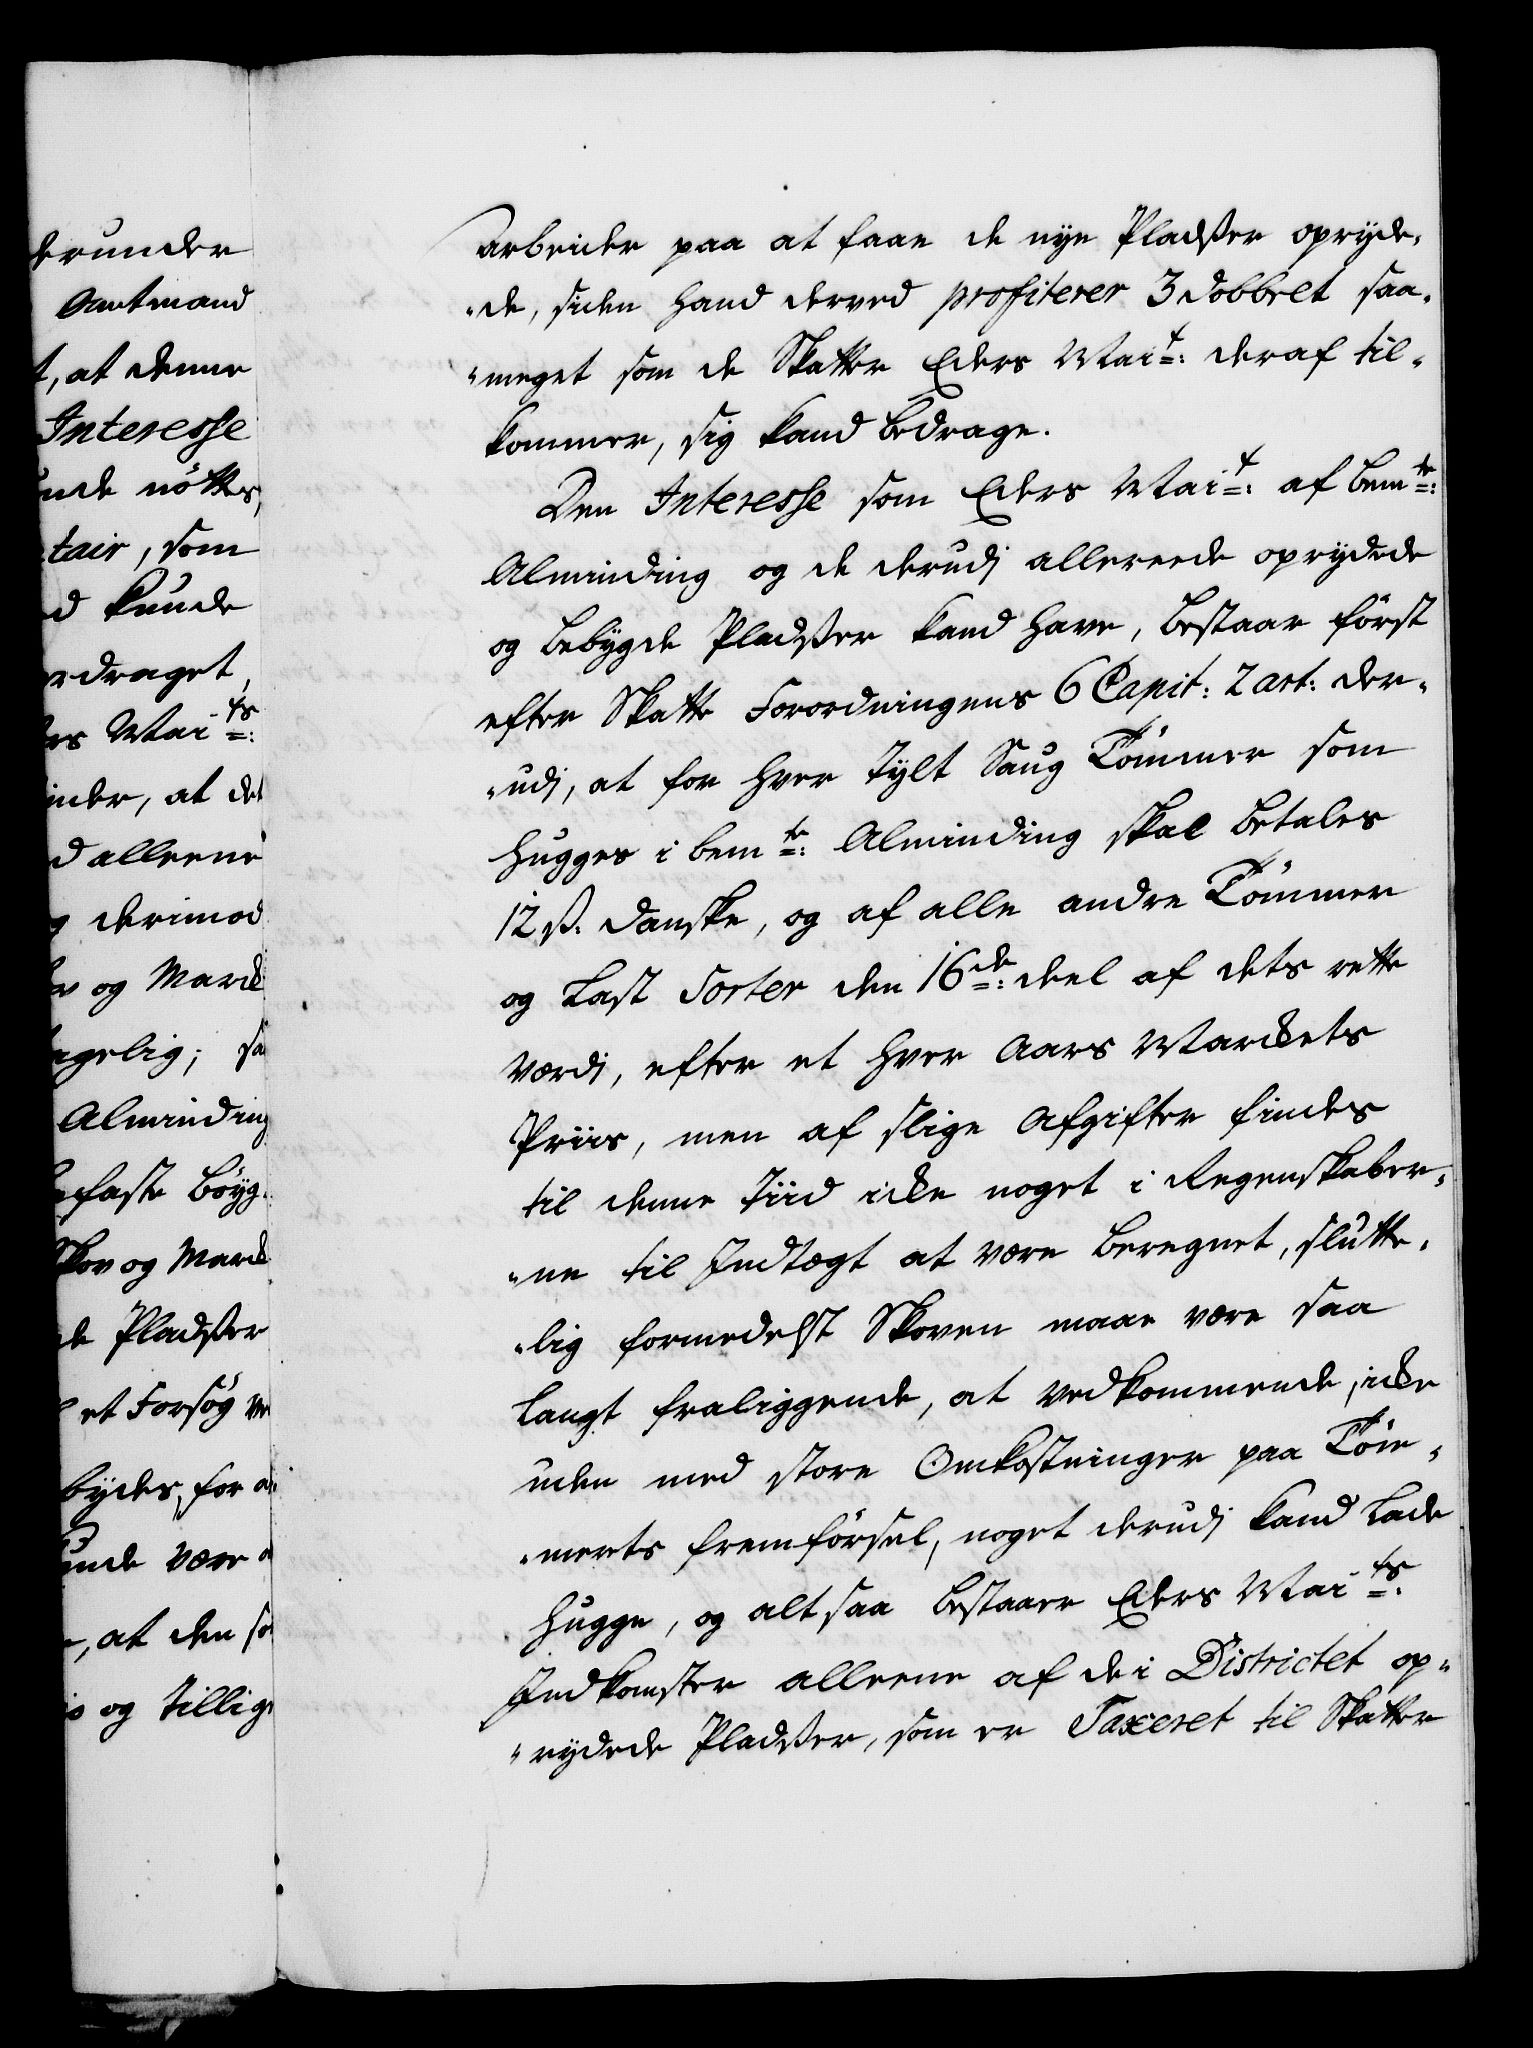 derunder
Amtmand
t, at denne
Interesse
unde nötte,
tair, som
d kunde
ordraget,
rs Maits:
inder, at det
d alleene
g derimod
v og Marck
gelig; sa
Alminding
faste böyg-
Skov og Marck
de Pladsser
et Forsög
bydes, for a
unde være
, at den so
og tillige
arbeider paa at faae de nye Pladsser opryde-
"de, siden hand derved profiterer 3 dobbelt saa-
"meget som de Skatter Eders Mait: deraf til-
kommer, sig kand bedrage.
Den Interesse som Eders Mait: af bemte:
Alminding og de derudj allereede oprydede
og bebygde Pladsser kand have, bestaar först
efter Skatte Forordningens 6 Capit: 2 art: der-
"udj, at for hver Tylt Saug Tömmer som
hugges i bemte: Alminding skal betales
12 ß. danske, og af alle andre Tömmer
og Last Sorter den 16de: deel af dets rette
værdj, efter et hver Aars Marckets
Priis, men af slige Afgifter findes
til denne Tiid icke noget i Regenskaber-
"ne til Indtægt at være beregnet, slutte-
"lig formedelst Skoven maae være saa
langt fraliggende, at vedkommende, icke
uden med store Omkostninger paa Töm-
"merets fremförsel, noget derudj kand lade
hugge, og altsaa bestaaer Eders Maits:
Indkomster alleene af de i Districtet op-
"rydede Pladsser, som er Taxeret til Skatter